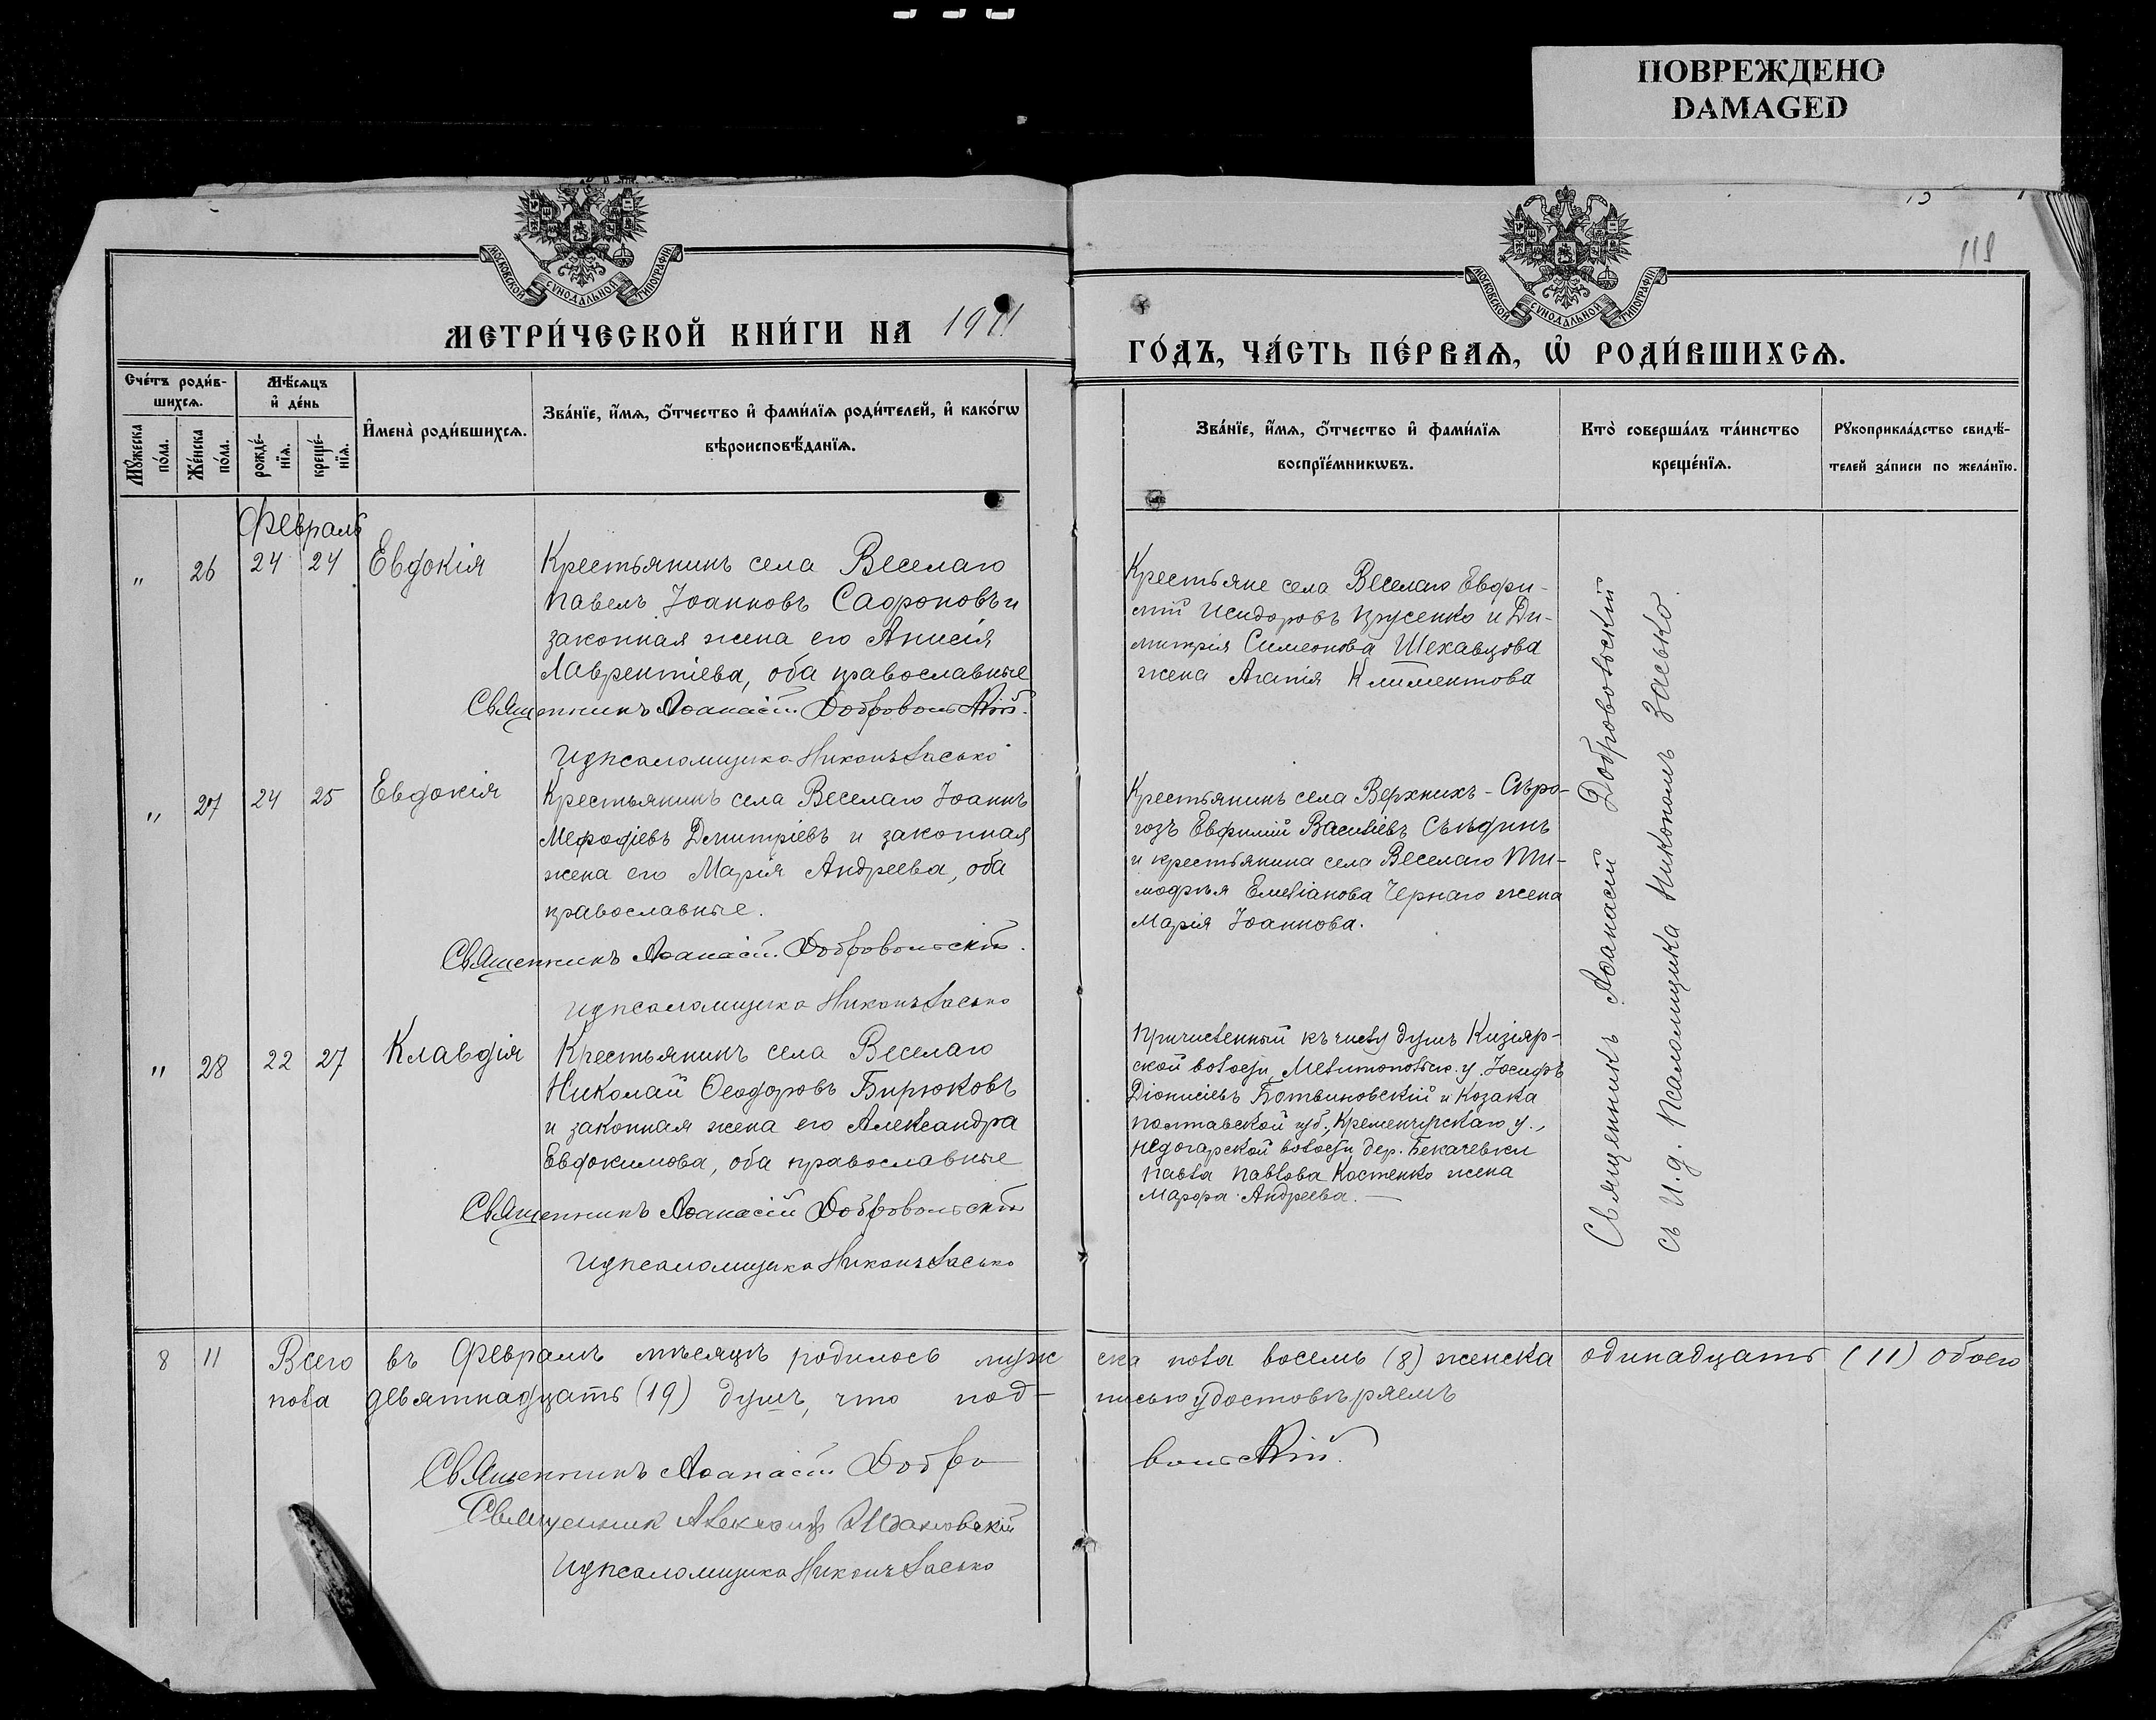 ПОВРЕЖДЕНО
DAMAGED
119
МОСКОВСКОЙ СѴНОДАЛЬНОЙ ТИПОГРАФІИ
МОСКОВСКОЙ СѴНОДАЛЬНОЙ ТИПОГРАФІИ
МЕТРИ́ЧЕСКОЙ КНИ́ГИ НА 1911
ГО́ДЪ, ЧА́СТЬ ПЕ́РВАѦ, Ѡ҆ РОДИ́ВШИХСѦ.
Сче́тъ роди́в-
шихсѧ.
Мѣ́сѧцъ
и҆ де́нь
Мꙋ́жеска
по́ла.
Же́нска
по́ла.
рожде́-
нїѧ.
креще́-
нїѧ.
И҆мена̀ роди́вшихсѧ.
Зва́нїе, и҆́мѧ, ѻ҆́тчество и҆ фами́лїѧ роди́телей, и҆ како́гѡ
вѣроисповѣ́данїѧ.
Зва́нїе, и҆́мѧ, ѻ҆́тчество и҆ фами́лїѧ
воспрїе́мникѡвъ.
Кто̀ соверша́лъ та́инство
креще́нїѧ.
Рꙋкоприкла́дство свидѣ́-
телей за́писи по жела́нїю.
Февраль
" 26 24 24 Евдокія
Крестьянинъ села Веселаго
Павелъ Іоанновъ Сафроновъ и
законная жена его Анисія
Лаврентіева, оба православные
Священникъ Аѳанасій Добровольскій.
И д псаломщика Никонъ Засько
Крестьяне села Веселаго Евфи-
мій Исидоровъ Прусенко и Ди-
митрія Симеонова Шехавцова
жена Агапія Климентова
" 27 24 25 Евдокія
Крестьянинъ села Веселаго Іоаннъ
Мефодіевъ Дмитріевъ и законная
жена его Марія Андреева, оба
православные.
Священникъ Аѳанасій Добровольскій.
И д псаломщика Никонъ Засько
Крестьянинъ села Верхнихъ-Сѣро-
гозъ Евфимій Василіевъ
и крестьянина села Веселаго Ти-
мофея Емеліанова Чернаго жена
Марія Іоаннова.
" 28 22 27 Клавдія
Крестьянинъ села Веселаго
Николай Ѳеодоровъ Бирюковъ
и законная жена его Александра
Евдокимова, оба православные
Священникъ Аѳанасій Добровольскій
И д псаломщика Никонъ Засько
Причисленный къ числу душъ Кизіяр-
ской волости, Мелитопольск. у. Іосифъ
Діонисіевъ Ботвиновскій и Козака
Полтавской губ., Кременчугскаго у.,
Недогарской волости дер. Бекачевки
Павла Павлова Костенко жена
Марфа Андреева.
Священникъ Аѳанасій Добровольскій
съ И. д. Псаломщика Никономъ Засько.
8 11 Всего въ Февралѣ мѣсяцѣ родилось муж
ска пола восемь (8) женска одинадцать (11) обоего
пола девятнадцать (19) душъ, что под-
писью удостовѣряемъ
Священникъ Аѳанасій Добро
вольскій.
Священник Александр
И д псаломщика Никонъ Засько